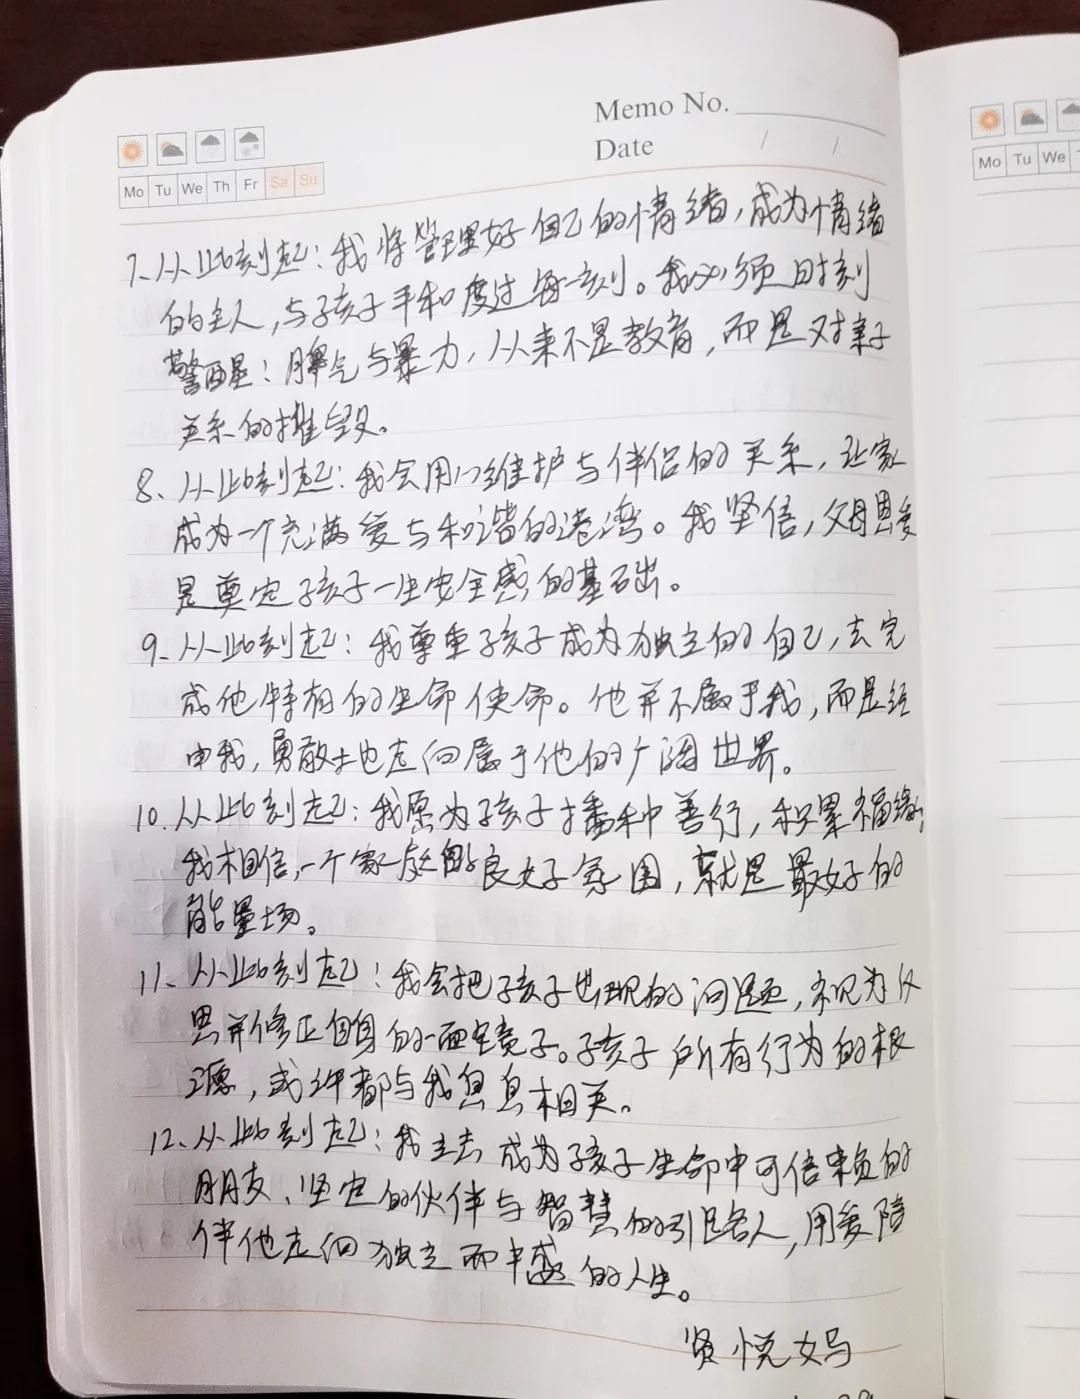 Memo No.
Date / /
Mo Tu We Th Fr Sa Su
Mo Tu We
7、从此刻起：我将管理好自己的情绪，成为情绪
的主人，与孩子平和度过每一刻。我必须时刻
警醒：脾气与暴力，从来不是教育，而是对亲子
关系的摧毁。
8、从此刻起：我会用心维护与伴侣的关系，让家
成为一个充满爱与和谐的港湾。我坚信，父母恩爱
是奠定孩子一生安全感的基础。
9、从此刻起：我尊重孩子成为独立的自己，去完
成他特有的生命使命。他并不属于我，而是经
由我，勇敢地走向属于他的广阔世界。
10、从此刻起：我愿为孩子播种善行，积累福缘。
我相信，一个家庭的良好氛围，就是最好的
能量场。
11、从此刻起：我会把孩子出现的问题，视为反
思并修正自身的一面镜子。孩子所有行为的根
源，或许都与我息息相关。
12、从此刻起：我立志成为孩子生命中可信赖的
朋友、坚定的伙伴与智慧的引路人，用爱陪
伴他走向独立而丰盛的人生。
贤悦妈